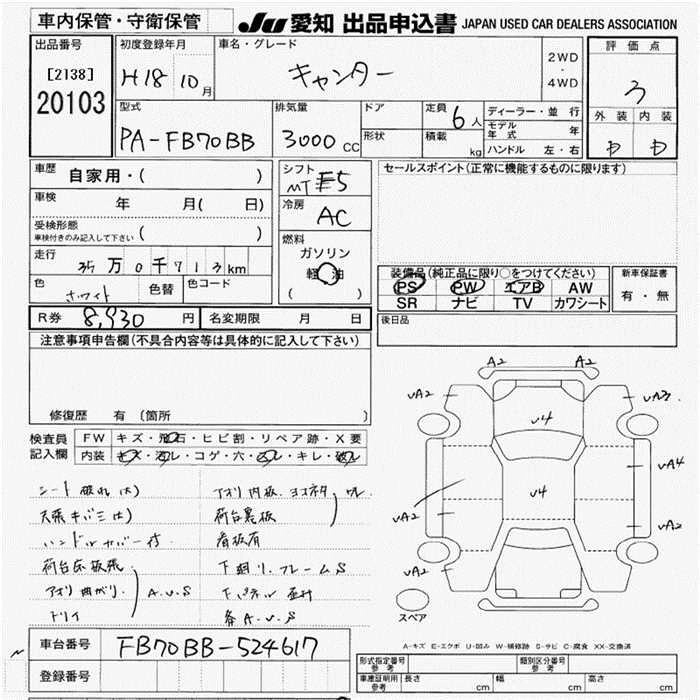 車内保管・守衛保管
JU 愛知 出品申込書 JAPAN USED CAR DEALERS ASSOCIATION
出品番号
[2138]
20103
初度登録年月
H18 10月
車名・グレード
キャンター
2WD
・
4WD
評価点
3
外装 内装
D D
型式
PA-FB70BB
排気量
3000 CC
ドア
形状
定員 6人
積載 kg
ディーラー・並行
モデル年式 年
ハンドル 左・右
車歴 自家用・( )
車検 年 月( 日)
受検形態
車検付きのみ記入して下さい ( )
走行 35万0千713km
色 ホワイト 色替 色コード
シフト
MT F5
冷房
AC
燃料
ガソリン
軽油
( )
セールスポイント(正常に機能するものに限ります)
装備品(純正品に限り○をつけてください)
PS PW エアB AW
SR ナビ TV カワシート
新車保証書
有・無
R券 8,930 円 名変期限 月 日
後日品
注意事項申告欄(不具合内容等は具体的に記入して下さい)
修復歴 有 (箇所 )
検査員記入欄
FW キズ・飛石・ヒビ割・リペア跡・X要
内装 キズ・汚レ・コゲ・穴・凹レ・キレ・破レ
シート破れ(大)
ハンドルカバー付
荷台床板
アオリ曲がり A.U.S
アオリ内板
荷台裏板
看板有
下廻り.フレームS
A.U.S
A2 A2
UA2 UA3
U4
U4
UA4
UA2 UA2
UA2
スペア
A-キズ E-エクボ U-凹み W-補修跡 S-サビ C-腐食 XX-交換済
車台番号 FB70BB-524617
登録番号
型式指定番号 参考
類別区分番号 参考
車庫証明用 参考 長さ cm 幅 cm 高さ cm